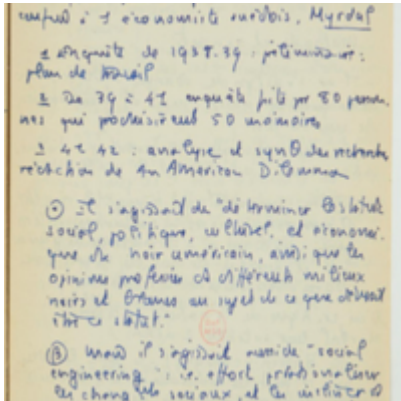 confiée à 1 économiste suédois, Myrdal
1 enquête de 1938.39 : préliminaire :
plan de travail
2 De 39 à 41 enquête faite par 80 person
nes qui produisirent 50 mémoires
3 41 42 : analyse et synth des recherches
rédaction de An American Dilemma
Il s'agissait de "déterminer le statut
social, politique, culturel, et économi
que du noir américain, ainsi que les
opinions professées ds différents milieux
noirs et blancs au sujet de ce que devrait
être ce statut."
(B) mais il s'agissait aussi de "social
engineering" : i.e. effort pr rationaliser
les chang sociaux, et les